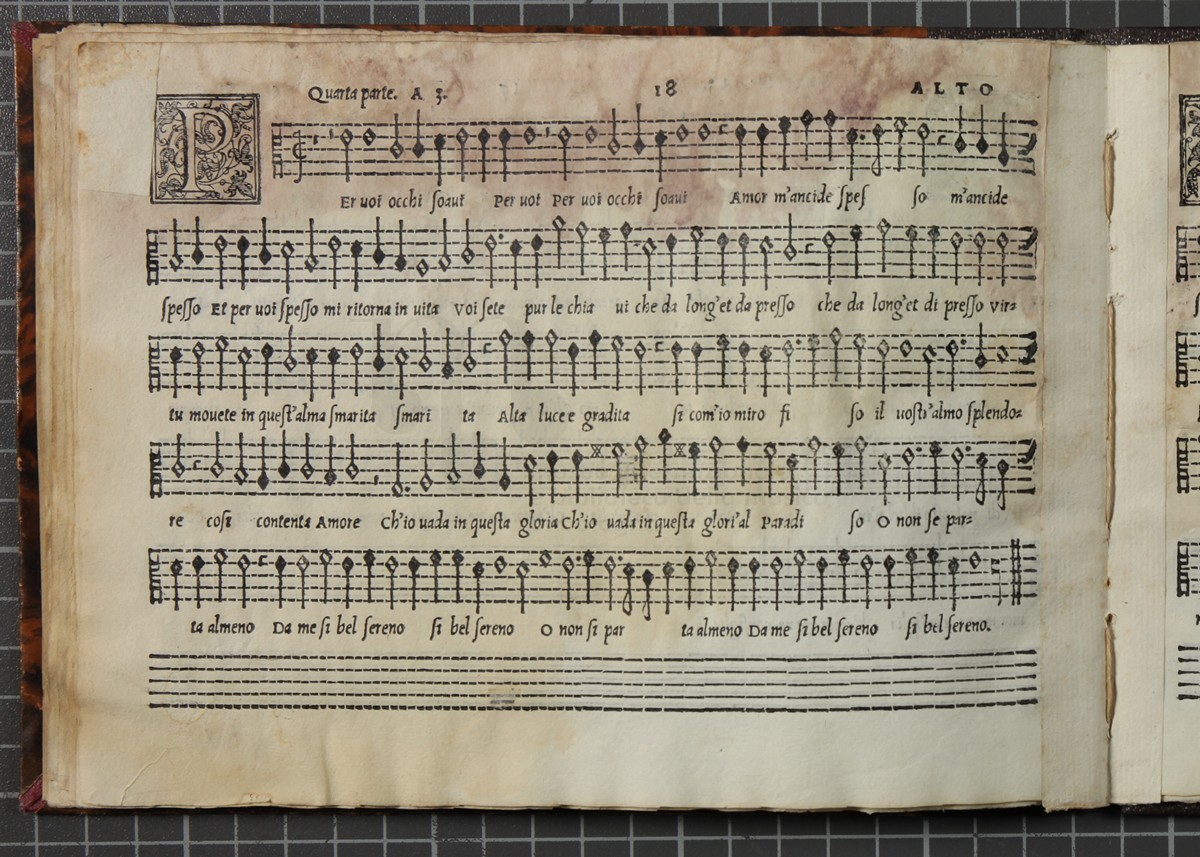 Quarta parte. A 3. 18 ALTO
PEr uoi occhi ſoaui Per uoi Per uoi occhi ſoaui Amor m'ancide ſpeſ ſo m'ancide
ſpeſſo Et per uoi ſpeſſo mi ritorna in uita Voi ſete pur le chia ui che da long'et da preſſo che da long'et di preſſo vir-
tu mouete in queſt'alma ſmarita ſmari ta Alta luce e gradita ſi com'io miro fi ſo il uoſtr'almo ſplendo-
re coſi contenta Amore Ch'io uada in queſta gloria Ch'io uada in queſta glori'al Paradi ſo O non ſe par-
ta almeno Da me ſi bel ſereno ſi bel ſereno O non ſi par ta almeno Da me ſi bel ſereno ſi bel ſereno.